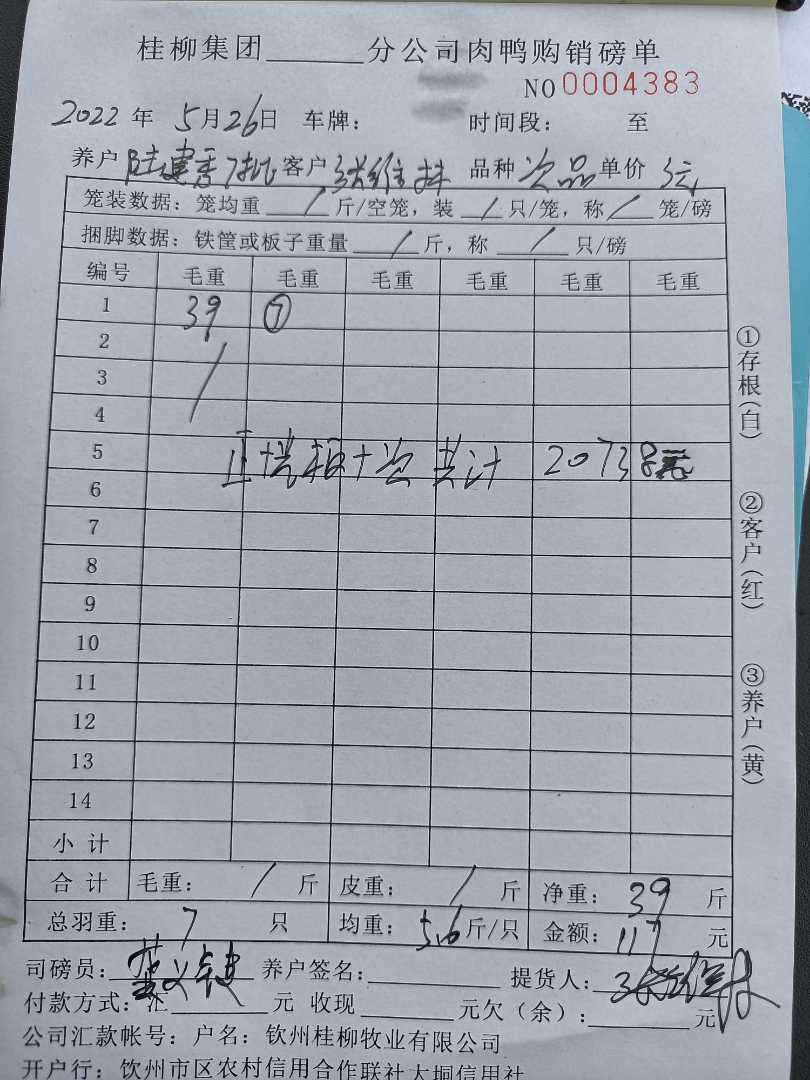 桂柳集团______分公司肉鸭购销磅单
NO 0004383
2022年 5月26日 车牌: 时间段: 至
养户 陆建秀7批 客户 张维林 品种 次品 单价 3元
笼装数据: 笼均重 / 斤/空笼, 装 / 只/笼, 称 / 笼/磅
捆脚数据: 铁筐或板子重量 / 斤, 称 / 只/磅
编号 毛重 毛重 毛重 毛重 毛重 毛重
1 39 ⑦
2
3 /
4
5 正 次 共计 20738元
6
7
8
9
10
11
12
13
14
小计
合计 毛重: / 斤 皮重: / 斤 净重: 39 斤
总羽重: 7 只 均重: 5.6 斤/只 金额: 117 元
司磅员: 养户签名: 提货人: 张维林
付款方式: 汇______元 收现______元欠(余):______元
公司汇款帐号: 户名: 钦州桂柳牧业有限公司
开户行: 钦州市区农村信用合作联社大垌信用社
①存根(白)
②客户(红)
③养户(黄)